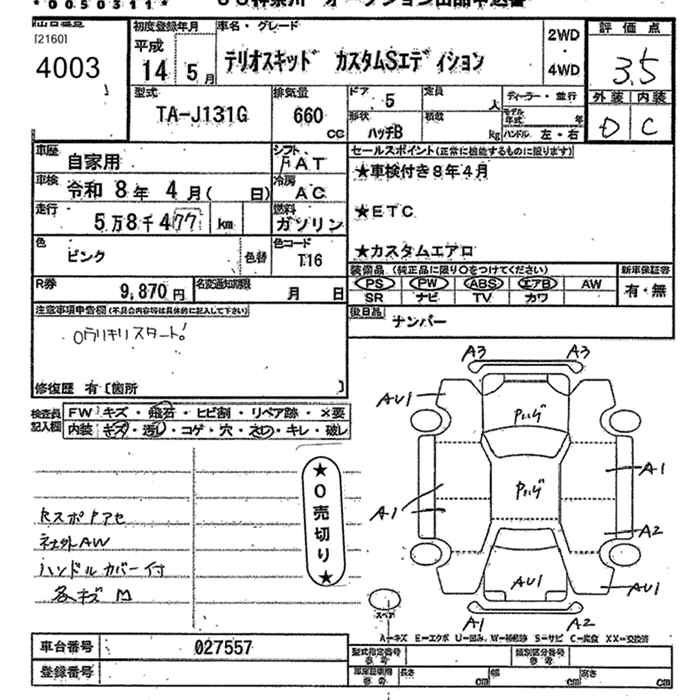 *0050311*
[2160]
4003
初度登録年月
平成
14年 5月
車名・グレード
テリオスキッド カスタムSエディション
2WD
・
4WD
評価点
3.5
外装 内装
D C
型式
TA-J131G
排気量
660
cc
ドア
5
定員
人
ディーラー・並行
形状
ハッチB
積載
kg
モデル年式
年
ハンドル 左・右
車歴
自家用
シフト
FAT
セールスポイント(正常に機能するものに限ります)
★車検付き8年4月
★ETC
★カスタムエアロ
車検
令和 8年 4月( 日)
冷房
AC
走行
5万8千477 km
燃料
ガソリン
色
ピンク
色替
色コード
T16
装備品 (純正品に限り○をつけてください)
新車保証書
PS PW ABS エアB AW
有・無
SR ナビ TV カワ
R券
9,870円
名変通知期限
月 日
後日品
ナンバー
注意事項申告欄(不具合内容等は具体的に記入して下さい)
0ウリキリスタート!
修復歴 有〔箇所 〕
検査員記入欄
FW キズ・飛石・ヒビ割・リペア跡・×要
内装 キズ・汚し・コゲ・穴・ヌレ・キレ・破レ
★0売切り★
RスポPアセ
社外AW
ハンドルカバー付
各キズ
A3 A3
AU1
Pハゲ
A1
Pハゲ
A1
A2
AU1
AU1
A1 A2
スペア
A=キズ E=エクボ U=凹み W=補修跡 S=サビ C=腐食 XX=交換済
車台番号
027557
登録番号
型式指定番号
参考
類別区分番号
参考
長さ cm
幅 cm
高さ cm